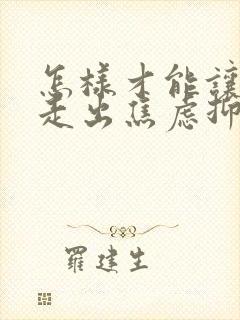 怎樣才能讓
走出焦虑抑
羅建生